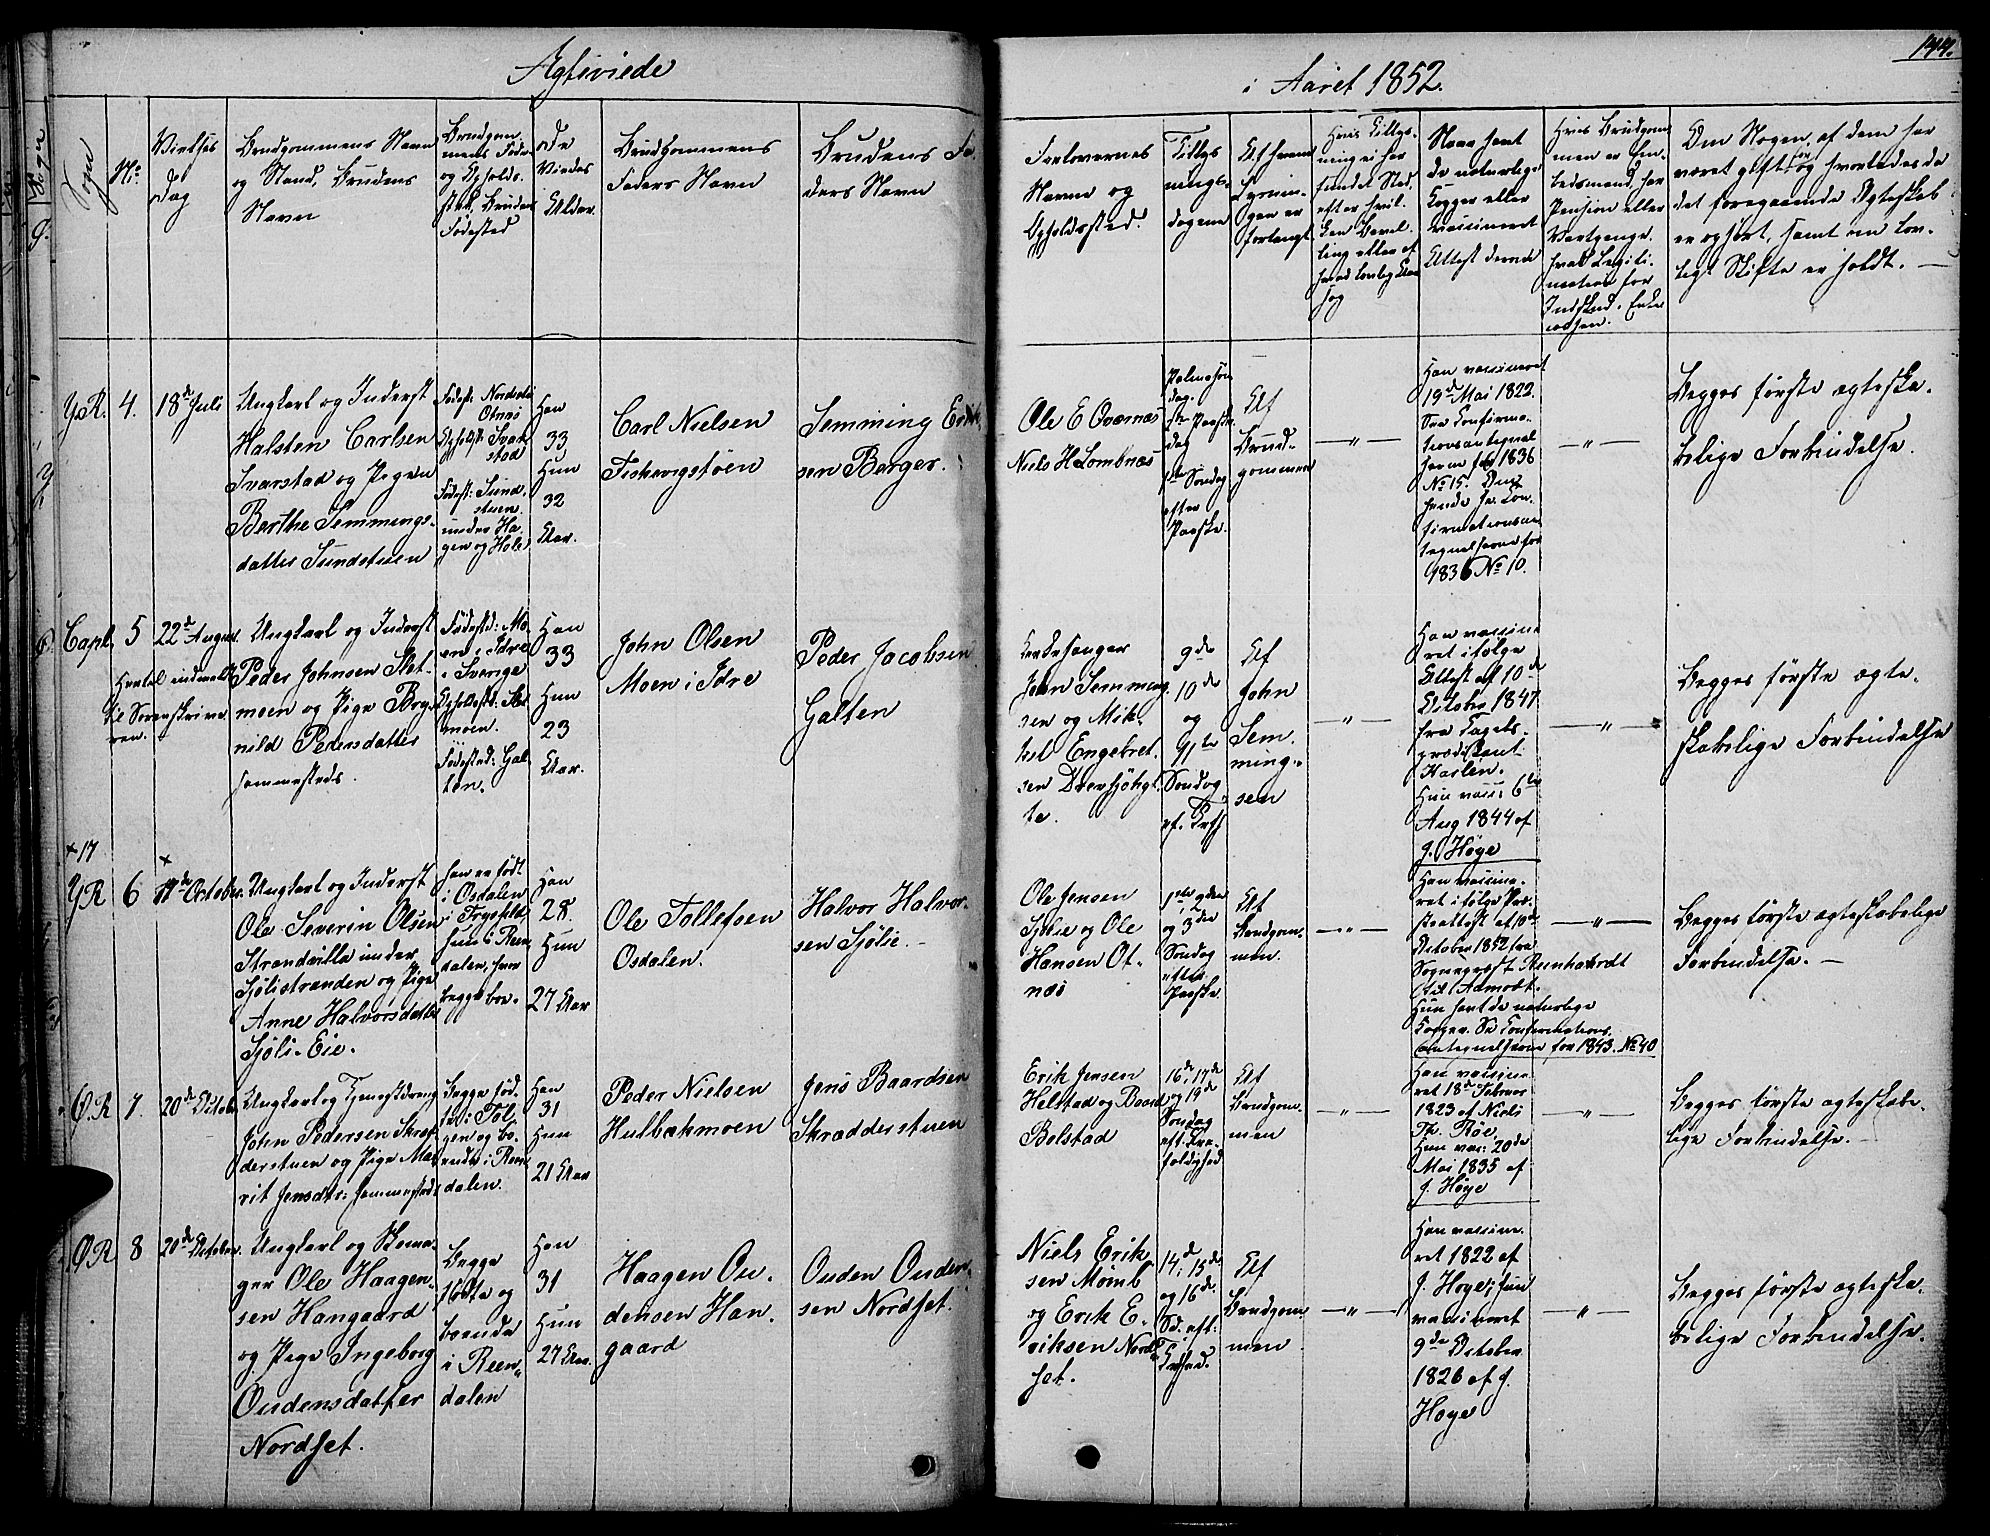 Ægteviede
i Aaret 1852.
144.
Sogn
No.
Vielses
Dag
Brudgommens Navn
og Stand, Brudens
Navn
Brudgom-
mens Føde
og Opholds-
sted, Brudens
Fødested
De
Viedes
Alder.
Brudgommens
Faders Navn
Brudens Fa-
ders Navn
Forlovernes
Navne og
Opholdssted.
Tillys
nings-
dagene
Af hvem
Lysnin-
gen er
forlangt.
Hvis Tillys-
ning ei har
fundet Sted,
efter hvil-
ken Bevil-
ling eller af
Naar havt
de naturlige
Kopper eller
vaccineret
Attest derom
Hvis Brudgom
men er Em-
bedsmand, har
Pension eller
hvad Legiti-
mation for
Indskud i Enke
cassen.
Om Nogen af dem har
været gift før og hvorledes da
det foregaaende Ægteskab
er ophørt, samt om lov-
ligt Skifte er holdt. —
Y.R. 4. 18de Juli
Ungkarl og Inderst
Halsten Carlsen
Svarstad og Pigen
Berthe Semmings-
datter Sundstuen
Fødest: Nordseti
Otnæs
Opholdst: Svar-
stad
Fødest: Sund-
stuen
under Ha-
gen og Hole
Han
33
Hun
32
Aar.
Carl Nielsen
Fiskevigstøen
Semming Erik-
sen Berger.
Ole E Overnæs
Niels H Lombnæs
Palmesøn
dag.
2den Paaske-
dag
1ste Søndag
efter
Paaske.
Af
Brud-
gommen
— " —
Han vaccineret
19de Mai 1822.
See Confirma-
tionsantegnel
serne for 1836
No 15. Om
hende see Con-
firmationsan
tegnelserne for
1836 No 10.
— " —
Begges første ægteska-
belige Forbindelse.
Capl. 5 22de August.
til Sorenskrive
ren.
Ungkarl og Inderst
Peder Johnsen Slet-
moen og Pige Bry-
nild Pedersdatter
sammesteds.
Fødested: Mo-
en i Idre
i Sverige
Opholdsst: Slet
moen.
Fødested: Gal-
ten.
Han
33
Hun
23
Aar.
John Olsen
Moen i Idre
Peder Jacobsen
Galten
Kirkesanger
John Semming-
sen og Mik-
kel Engebret-
sen Drevsjøhyt-
te.
9de
10de
og
11te
Søndag
ef. Tref
Af
John
Sem-
ming-
sen
— " —
Han vaccine
ret ifølge
Attest af 10de
October 1847
fra
Hun vacc: 6te
Aug 1844 af
J. Høye
— " —
Begges første ægte-
skabelige Forbindelse
+17
YR 6 + 17de October.
Ungkarl og Inderst
Ole Severin Olsen
Strandvilla under
Sjølistranden og Pige
Anne Halvorsdatter
Sjøli-Eie.
Han er født
i Osdalen
i Trysild,
hun i Reen
dalen, hvor
begge boe.
Han
28.
Hun
27 Aar
Ole Tollefsen
Osdalen.
Halvor Halvor-
sen Sjølie. —
Ole Jensen
Sjølie og Ole
Hansen Ot-
næs
1ste, 2den
og 3die
Søndag
efter
Paaske
Af
Brudgom-
men.
— " —
Han vaccine-
ret ifølge Præ-
steattest af 10de
October 1852 fra
Sognepræst Reinhardt
til Aamodt.
Hun havt de naturlige
Kopper. See Confirmations
antegnelserne for 1843. No 40
— " —
Begges første ægteskabelige
Forbindelse. —
Ø.R 7. 20de Octob.
Ungkarl og Tjenestedreng
John Pedersen Skræd-
derstuen og Pige Ma-
rit Jensdtr: sammesteds
Begge fød-
te i Tol-
gen og bo-
ende i Reen
dalen.
Han
31
Hun
21 Aar
Peder Nielsen
Hulbækmoen
Jens Baardsen
Skrædderstuen
Erik Jensen
Helstad og Baard
Bolstad
16de, 17de
og 19de
Søndag
eft. Tre-
foldighed
Af
Brudgom-
men
— " —
Han vaccine-
ret 18de Februar
1823 af Nicoli
Th. Røe.
Hun vac: 20de
Mai 1835 af
J. Høye
— " —
Begges første ægteskabe-
lige Forbindelse. —
ØR 8 20de October.
Ungkarl og Skoma-
ger Ole Haagen-
sen Hangaard
og Pige Ingeborg
Oudensdatter
Nordset.
Begge
fødte og
boende
i Reen-
dalen
Han
31
Hun
27 Aar.
Haagen Ou-
densen Han-
gaard
Ouden Ouden-
sen Nordset.
Niels Erik
sen Momb
og Erik E-
riksen Nord-
set.
14de, 15de
og 16de
Sd. eft:
Trefed.
Af
Brudgom-
men
— " —
Han vaccine-
ret 1822 af
J. Høye; hun
vaccineret
9de October
1826 af J.
Høye
— " —
Begges første ægteska-
belige Forbindelse.